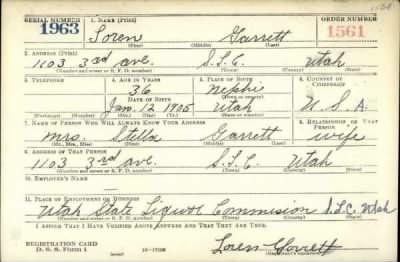 SERIAL NUMBER 1. NAME (Print) ORDER NUMBER
1963 Loren Garrett 1561
(First) (Middle) (Last)
2. ADDRESS (Print)
1103 3rd ave. S.L.C. Utah
(Number and street or R. F. D. number) (Town) (County) (State)
3. TELEPHONE 4. AGE IN YEARS 5. PLACE OF BIRTH 6. COUNTRY OF CITIZENSHIP
36 Nephi
DATE OF BIRTH (Town or county)
Jan. 12 1905 Utah U. S. A.
(Exchange) (Number) (Mo.) (Day) (Yr.) (State or country)
7. NAME OF PERSON WHO WILL ALWAYS KNOW YOUR ADDRESS 8. RELATIONSHIP OF THAT PERSON
Mrs. Stella Garrett wife
(Mr., Mrs., Miss) (First) (Middle) (Last)
9. ADDRESS OF THAT PERSON
1103 3rd ave. S.L.C. Utah
(Number and street or R. F. D. number) (Town) (County) (State)
10. EMPLOYER'S NAME
11. PLACE OF EMPLOYMENT OR BUSINESS
Utah State Liquor Commission S.L.C. Utah
(Number and street or R. F. D. number) (Town) (County) (State)
I AFFIRM THAT I HAVE VERIFIED ABOVE ANSWERS AND THAT THEY ARE TRUE.
REGISTRATION CARD
D. S. S. Form 1 Loren Garrett
(Registrant's signature)